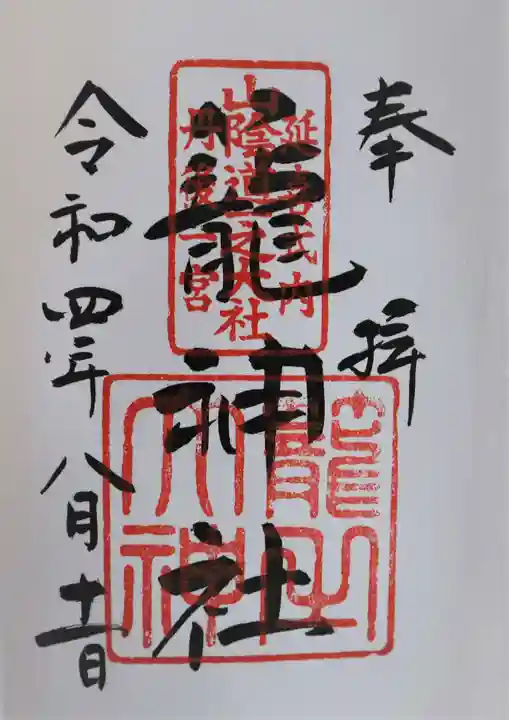 奉拝
延喜式内
山陰道一之大社
丹後一宮
籠神社
籠之
大神
令和四年八月十一日